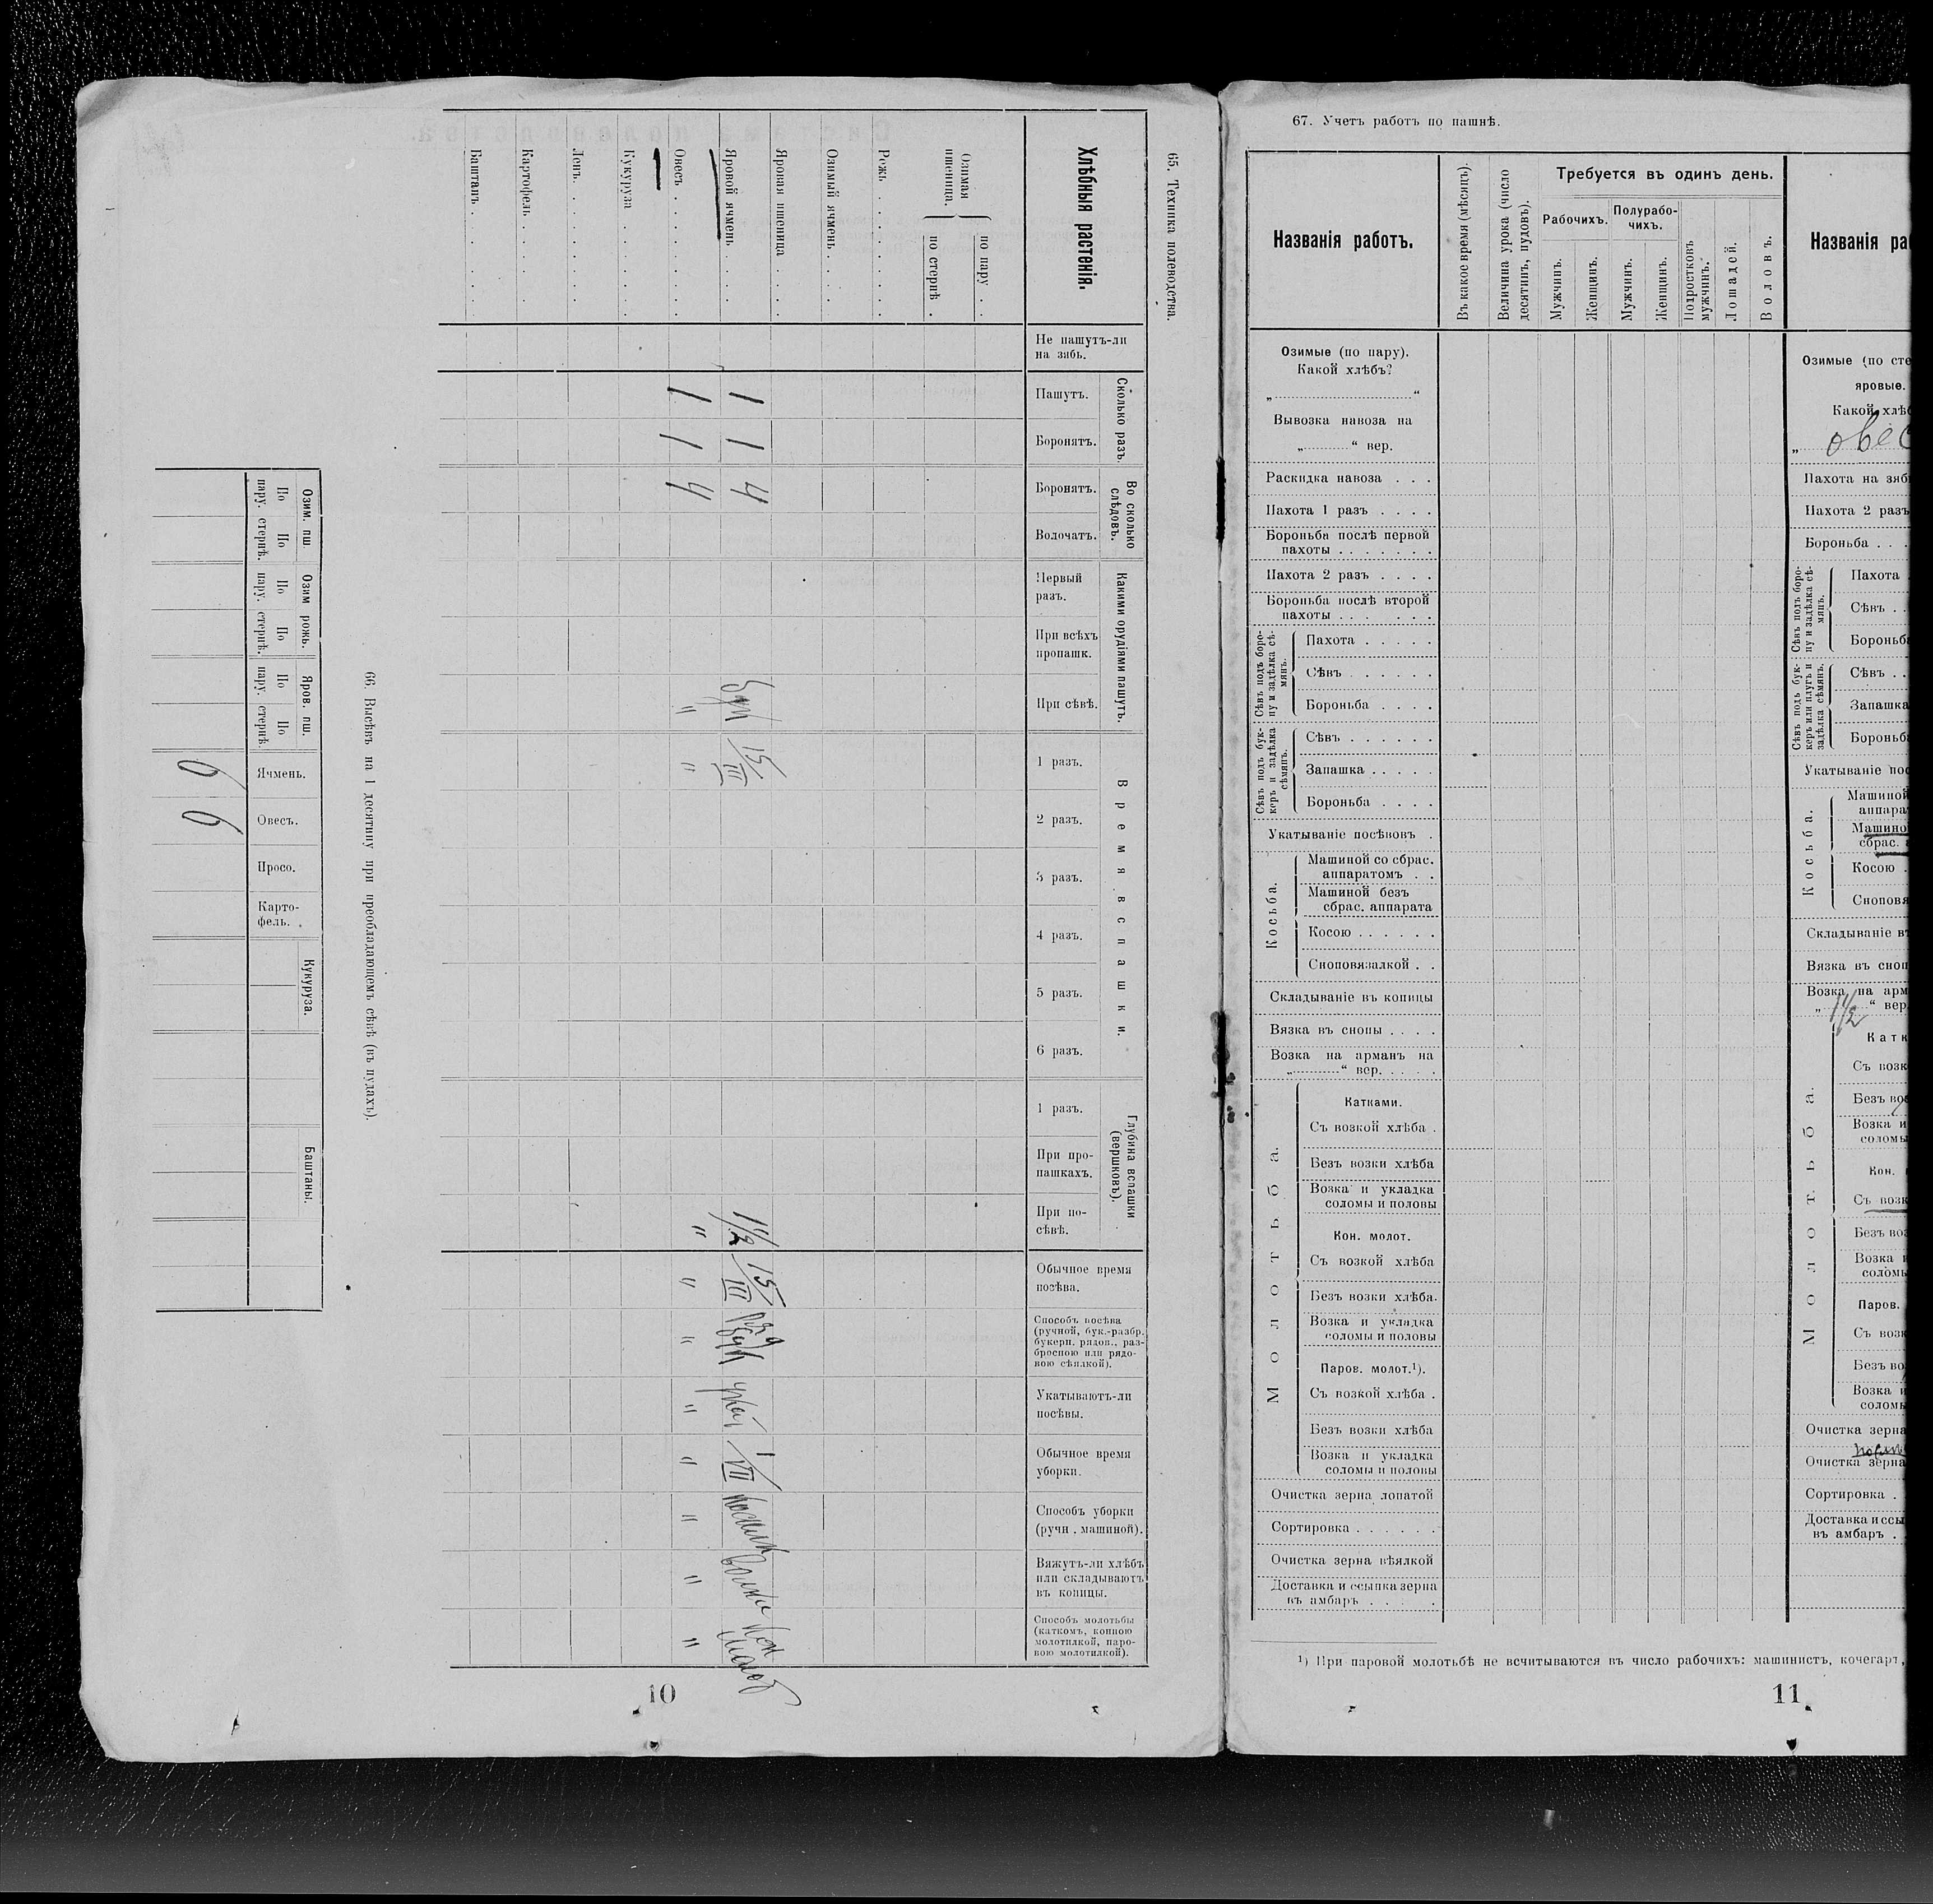 65. Техника полеводства.
Хлѣбныя растенія.
Не пашутъ-ли
на зябь.
Сколько разъ.
Пашутъ.
Боронятъ.
Во сколько
слѣдовъ.
Боронятъ.
Волочатъ.
Какими орудіями пашутъ.
Первый
разъ.
При всѣхъ
пропашк.
При сѣвѣ.
Время вспашки.
1 разъ.
2 разъ.
3 разъ.
4 разъ.
5 разъ.
6 разъ.
Глубина вспашки
(вершковъ).
1 разъ.
При про-
пашкахъ.
При по-
сѣвѣ.
Обычное время
посѣва.
Способъ посѣва
(ручной, бук.-разбр.
букерн. рядов., раз-
бросною или рядо-
вою сѣялкой).
Укатываютъ-ли
посѣвы.
Обычное время
уборки.
Способъ уборки
(ручн. машиной).
Вяжутъ-ли хлѣбъ
или складываютъ
въ копицы.
Способъ молотьбы
(каткомъ, конною
молотилкой, паро-
вою молотилкой).
Озимая
пшеница.
по пару . .
по стернѣ .
Рожь . . . . . . .
Озимый ячмень. . . .
Яровая пшеница . . . .
Яровой ячмень . . . 1 1 4 бук 15/III 1 1/2 15/III бук укат 1/VII косилк кон молот
Овесъ . . . . . . . 1 1 4 " " " " " " " " " "
Кукуруза . . . . .
Ленъ. . . . . . . .
Картофель . . . .
Баштанъ. . . . .
66. Высѣвъ на 1 десятину при преобладающемъ сѣвѣ (въ пудахъ).
Озим. пш.
По
пару.
По
стернѣ.
Озим рожь.
По
пару.
По
стернѣ.
Яров. пш.
По
пару.
По
стернѣ
Ячмень.
Овесъ.
Просо.
Карто-
фель.
Кукуруза.
Баштаны.
6 6
10
67. Учетъ работъ по пашнѣ.
Названія работъ.
Въ какое время (мѣсяцъ).
Величина урока (число
десятинъ, пудовъ).
Требуется въ одинъ день.
Рабочихъ.
Полурабо-
чихъ.
Мужчинъ.
Женщинъ.
Мужчинъ.
Женщинъ.
Подростковъ
мужчинъ.
Лошадей.
Воловъ.
Озимые (по пару).
Какой хлѣбъ?
„ “
Вывозка навоза на
„ “ вер.
Раскидка навоза . . .
Пахота 1 разъ . . . .
Бороньба послѣ первой
пахоты . . . . . . .
Пахота 2 разъ . . . .
Бороньба послѣ второй
пахоты . . . . . .
Сѣвъ подъ боро-
ну и задѣлка сѣ-
мянъ.
Пахота . . . . .
Сѣвъ . . . . . .
Бороньба . . . .
Сѣвъ подъ бук-
керъ и задѣлка
сѣмянъ.
Сѣвъ . . . . . .
Запашка . . . . .
Бороньба . . . .
Укатываніе посѣвовъ .
Косьба.
Машиной со сбрас.
аппаратомъ . .
Машиной безъ
сбрас. аппарата
Косою . . . . . .
Сноповязалкой . .
Складываніе въ копицы
Вязка въ снопы . . . .
Возка на арманъ на
„ “ вер. . . . .
Молотьба.
Катками.
Съ возкой хлѣба .
Безъ возки хлѣба
Возка и укладка
соломы и половы
Кон. молот.
Съ возкой хлѣба
Безъ возки хлѣба.
Возка и укладка
соломы и половы
Паров. молот.¹).
Съ возкой хлѣба .
Безъ возки хлѣба
Возка и укладка
соломы и половы
Очистка зерна лопатой
Сортировка . . . . . .
Очистка зерна вѣялкой
Доставка и ссыпка зерна
въ амбаръ . . . .
Названія ра
Озимые (по сте
яровые.
Какой хлѣ
„ овес
Пахота на зяб
Пахота 2 разъ
Бороньба . . .
Сѣвъ подъ боро-
ну и задѣлка сѣ-
мянъ.
Пахота .
Сѣвъ . .
Бороньб
Сѣвъ подъ бук-
керъ или плугъ и
задѣлка сѣмянъ.
Сѣвъ . .
Запашка
Бороньб
Укатываніе пос
Косьба.
Машиной
аппара
Машино
сбрас. а
Косою .
Сноповя
Складываніе въ
Вязка въ сноп
Возка на арм
„ 1 1/2 “ вер
Молотьба.
Катк
Съ возк
Безъ во
Возка и
соломы
Кон.
Съ возк
Безъ воз
Возка и
соломы
Паров.
Съ возк
Безъ во
Возка и
соломы
Очистка зерна
Очистка зерна
Сортировка .
Доставка и ссы
въ амбаръ . .
¹) При паровой молотьбѣ не всчитываются въ число рабочихъ: машинистъ, кочегаръ,
11